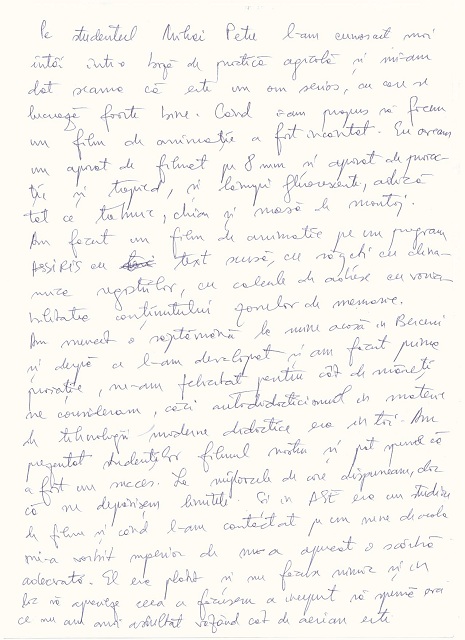 Pe studentul Mihai Petre l-am cunoscut mai
întâi într-o brigă de practică agricolă și mi-am
dat seama că este un om serios, cu care se
lucrează foarte bine. Când i-am propus să facem
un film de animație a fost încântat. Eu aveam
un aparat de filmat pe 8 mm și aparat de proiec-
ție și trepied, și lămpi fluorescente, adică
tot ce trebuie, chiar și masă de montaj.
Am făcut un film de animație pe un program
ASSIRIS cu text sursă, cu săgeți cu dina-
mica regiștrilor, cu calcule de adrese cu
conținutului zonelor de memorie.
Am muncit o săptămână la mine acasă în Berceni
și după ce l-am developat și am făcut prima
proiecție, ne-am felicitat pentru cât de măreți
ne consideram, căci autodidacticismul în materie
de tehnologii moderne didactice era în toi. Am
prezentat studenților filmul nostru și pot spune că
a fost un succes. La mijloacele de care dispuneam, clar
că ne depășisem limitele. Și în ASE era un studiou
de filme și când l-am contactat pe un nene de acolo
mi-a vorbit superior de mi-a apucat o scârbă
adecvată. El era plătit și nu făcuse nimic și în
loc să aprecieze ceea a făcusem a început să spună
ce nu am mai ascultat văzând cât de aerian este